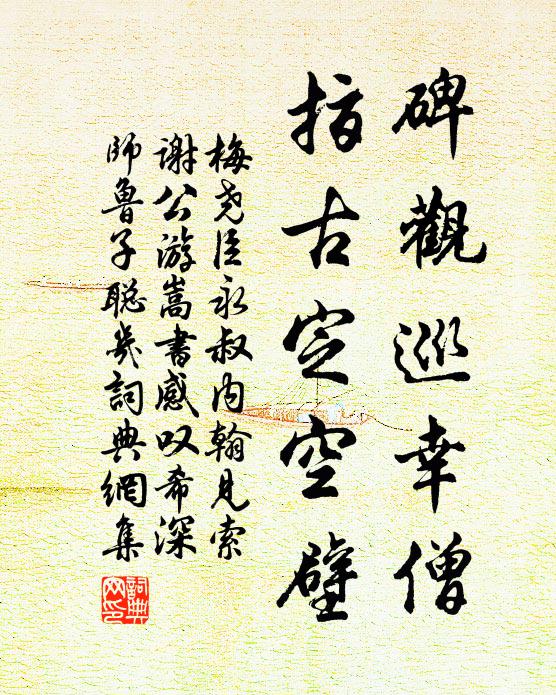 碑觀巡幸僧
指古定空壁
梅堯臣永叔内翰見索
謝公游嵩書感叹希深
師魯子聪幾詞典網集
詞典网印